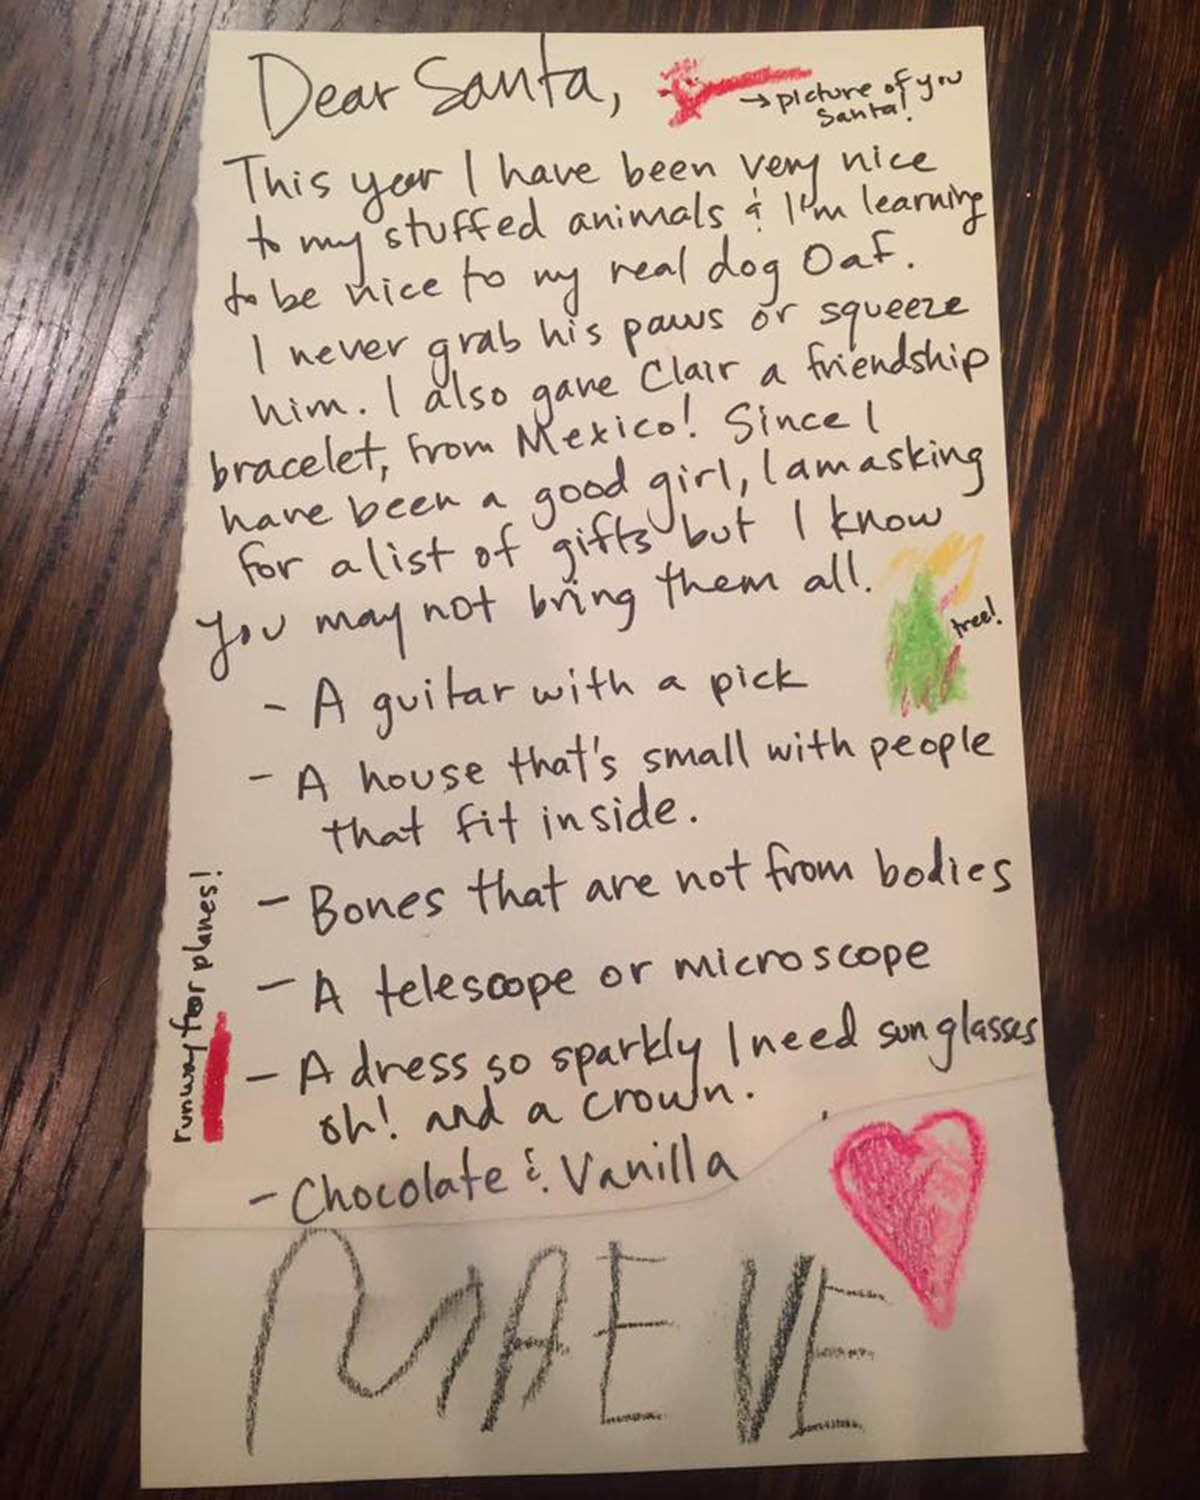 Dear Santa,
→ picture of you
Santa!
This year I have been very nice
to my stuffed animals & I'm learning
to be nice to my real dog Oaf.
I never grab his paws or squeeze
him. I also gave Clair a friendship
bracelet, from Mexico! Since I
have been a good girl, I am asking
for a list of gifts but I know
you may not bring them all.
tree!
- A guitar with a pick
- A house that's small with people
that fit inside.
- Bones that are not from bodies
- A telescope or microscope
- A dress so sparkly I need sunglasses
oh! and a crown.
- Chocolate & Vanilla
runway for planes!
MAEVE